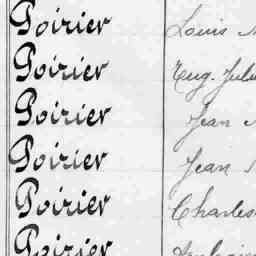 Poirier Louis
Poirier Eug. Jules
Poirier Jean
Poirier Jean
Poirier Charles
Poirier